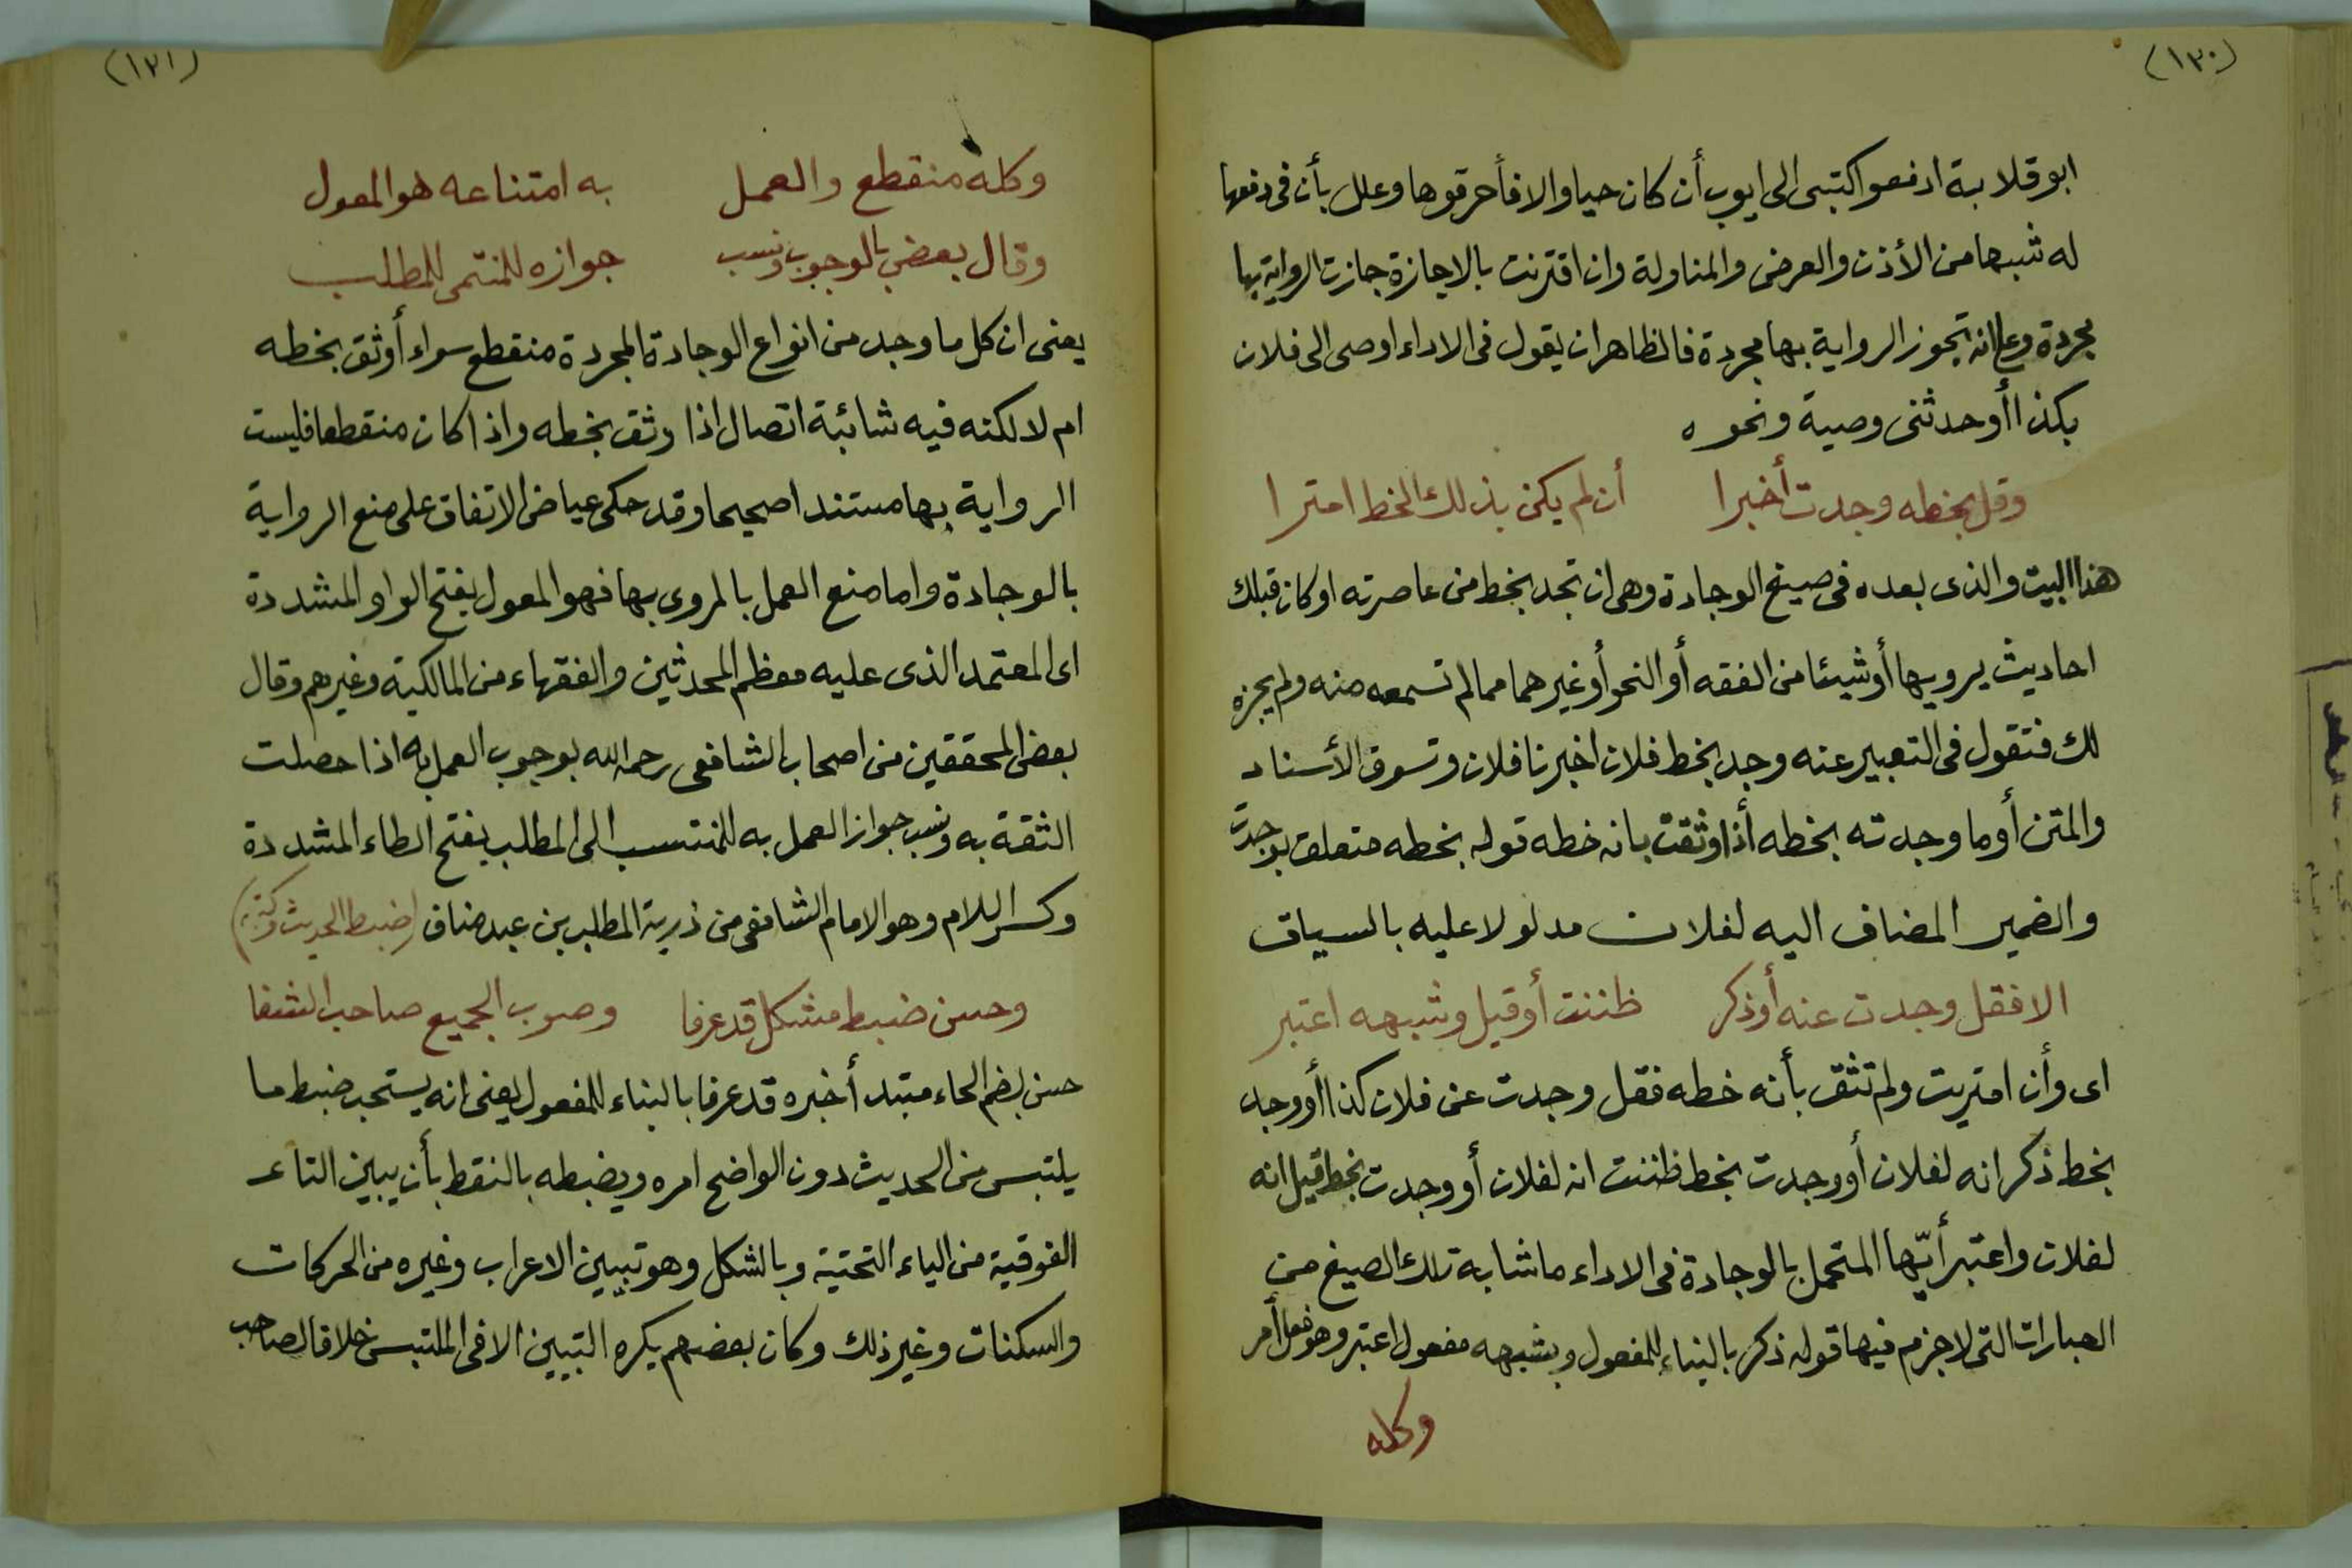 (١٣٠)
ابو قلابة ادفعوا كتبى الى ايوب أن كان حيا والا فأحرقوها وعلل بأن فى دفعها
له شبها من الأذن والعرض والمناولة وان اقترنت بالاجازة جازت الرواية بها
مجردة وعلى انه تجوز الرواية بها مجردة فالظاهر ان يقول فى الاداء اوصى الى فلان
بكذا أو حدثنى وصية ونحوه
وقل بخطه وجدت أخبرا أن لم يكن بذلك الخط امترا
هذا البيت والذى بعده فى صيغ الوجادة وهى ان تجد بخط من عاصرته او كان قبلك
احاديث يرويها أو شيئا من الفقه أو النحو أو غيرهما مما لم تسمعه منه ولم يجزه
لك فتقول فى التعبير عنه وجد بخط فلان اخبرنا فلان وتسوق الأسناد
والمتن أو ما وجدته بخطه أذا وثقت بانه خطه قوله بخطه متعلق بوجدت
والضمير المضاف اليه لفلان مدلولا عليه بالسياق
الا فقل وجدت عنه أو ذكر ظننت أو قيل وشبهه اعتبر
اى وأن امتريت ولم تثق بأنه خطه فقل وجدت عن فلان كذا أو وجد
بخط ذكر انه لفلان أو وجدت بخط ظننت انه لفلان أو وجدت بخط قيل انه
لفلان واعتبر أيّها المتحمل بالوجادة فى الاداء ما شابه تلك الصيغ من
العبارات التى لا جزم فيها قوله ذكر بالبناء للمفعول وبشبهه مفعول اعتبر وهو فعل أمر
وكله
(١٣١)
وكله منقطع والعمل به امتناعه هو المعول
وقال بعض بالوجوب ونسب جوازه للمنتمى للمطلب
يعنى ان كل ما وجد من انواع الوجادة المجردة منقطع سواء أوثق بخطه
ام لا لكنه فيه شائبة اتصال اذا وثق بخطه واذا كان منقطعا فليست
الرواية بها مستندا صحيحا وقد حكى عياض الاتفاق على منع الرواية
بالوجادة واما منع العمل بالمروى بها فهو المعول بفتح الواو المشددة
اى المعتمد الذى عليه معظم المحدثين والفقهاء من المالكية وغيرهم وقال
بعض المحققين من اصحاب الشافعى رحمه الله بوجوب العمل به اذا حصلت
الثقة به ونسب جواز العمل به للمنتسب الى المطلب بفتح الطاء المشددة
وكسر اللام وهو الامام الشافعى من ذرية المطلب بن عبد مناف (ضبط الحديث وكتبه)
وحسن ضبط مشكل قد عرفا وصوب الجميع صاحب الشفا
حسن بضم الحاء مبتدأ خبره قد عرفا بالبناء للمفعول يعنى انه يستحب ضبط ما
يلتبس من الحديث دون الواضح امره ويضبطه بالنقط بأن يبين التاء
الفوقية من الياء التحتية وبالشكل وهو تبيين الاعراب وغيره من الحركات
والسكنات وغير ذلك وكان بعضهم يكره التبيين الا فى الملتبس خلافا لصاحب